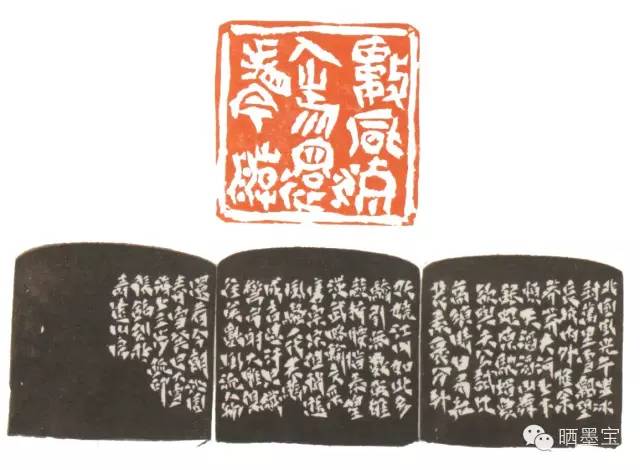 數風流
人物還
看今朝
北國風光千里冰
封萬里雪飄望
長城內外惟余
莽莽大河上下
頓失滔滔山舞
銀蛇原馳蠟象
欲與天公試比
高須晴日看紅
裝素裹分外
妖嬈江山如此多
嬌引無數英雄
競折腰惜秦皇
漢武略輸文采
唐宗宋祖稍遜
風騷一代天驕
成吉思汗只識
彎弓射大雕俱
往矣數風流人
物還看今朝沁園
春雪
晒墨宝